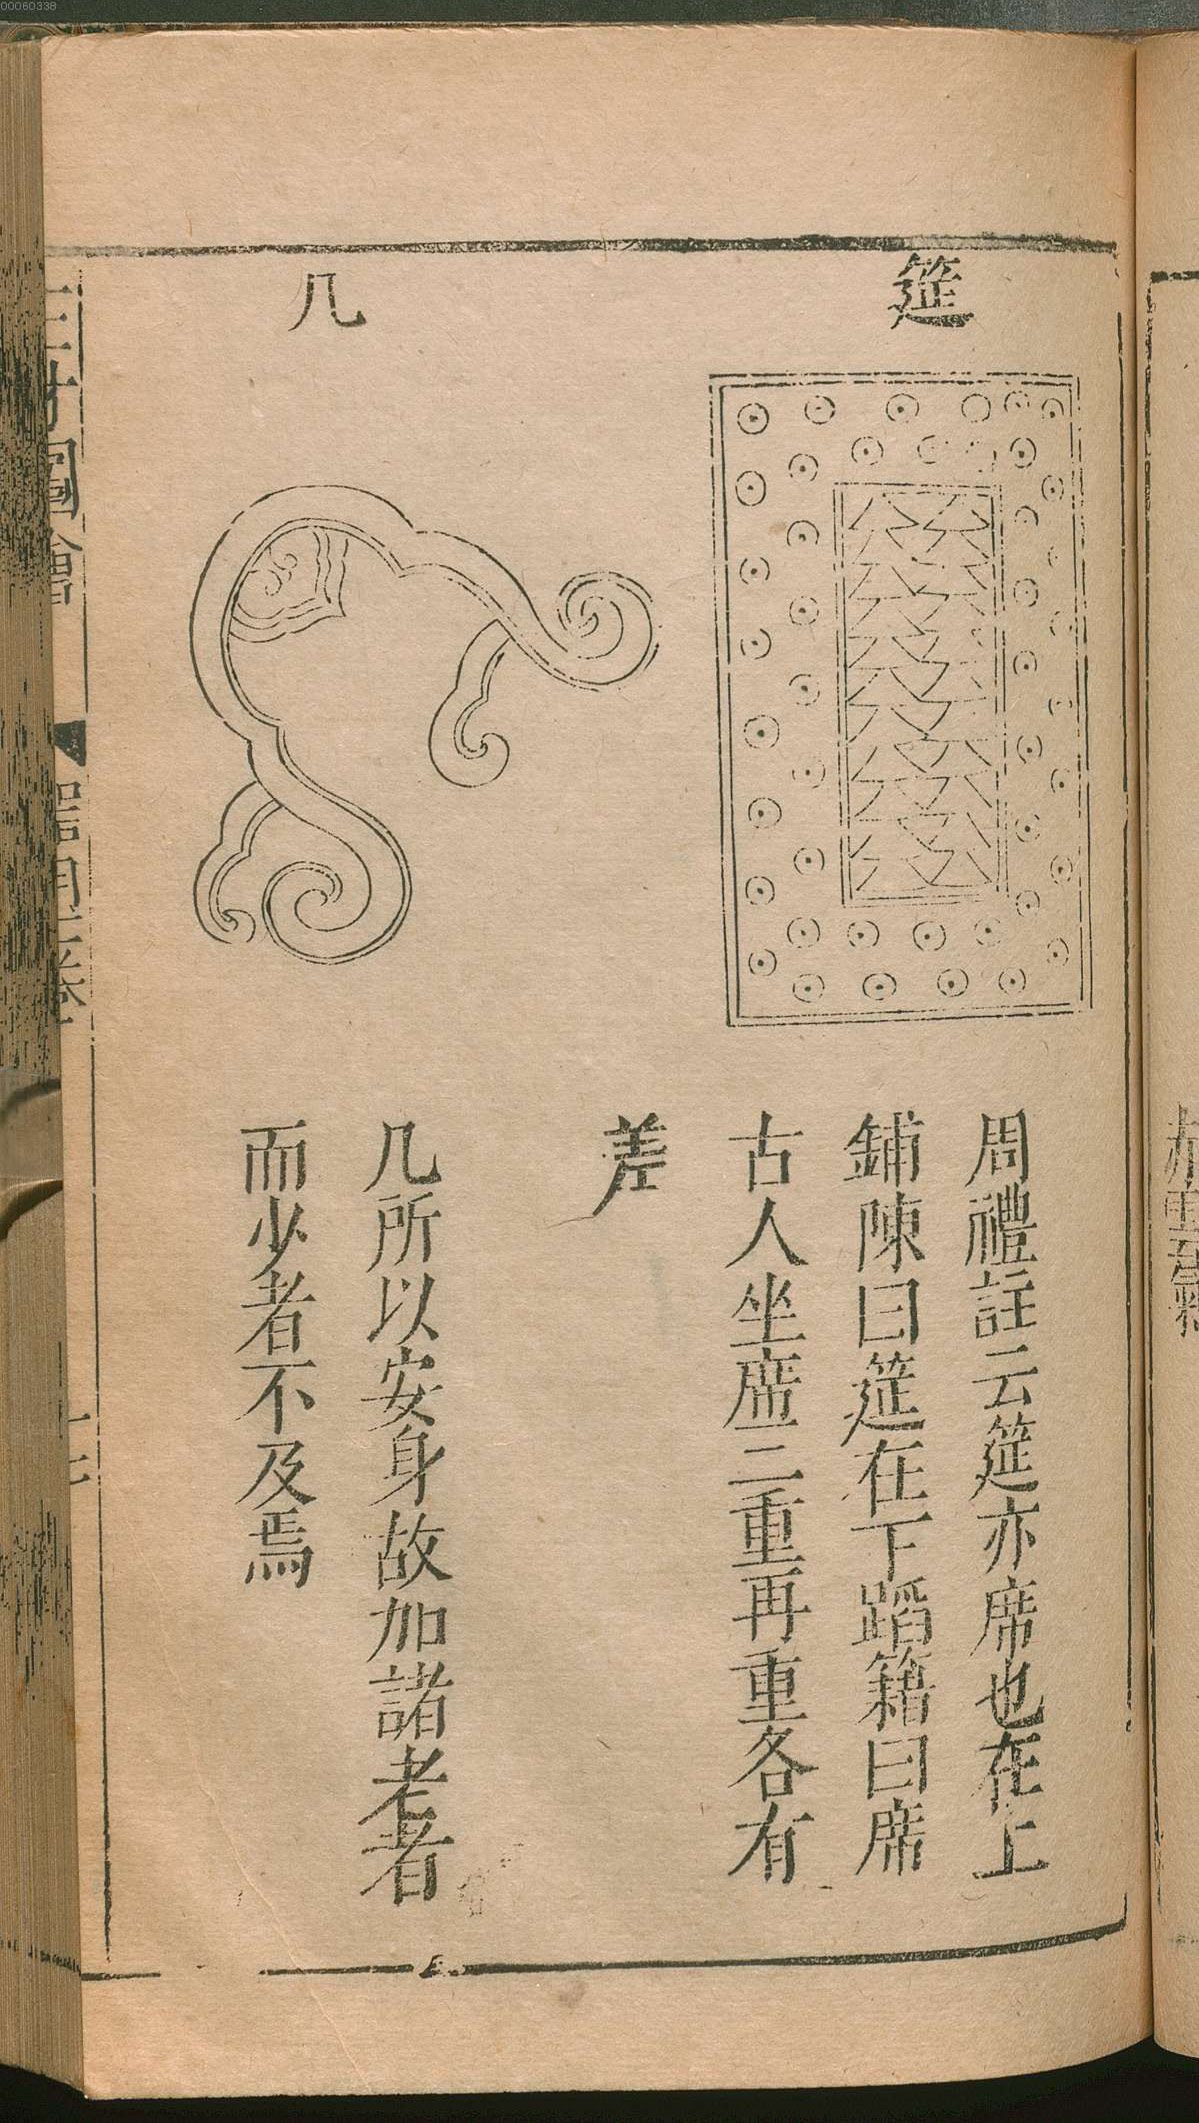 00060338
筵
周禮註云筵亦席也在上
鋪陳曰筵在下蹈籍曰席
古人坐席三重再重各有
差
几
几所以安身故加諸老者
而少者不及焉
三才圖會
器用十二卷